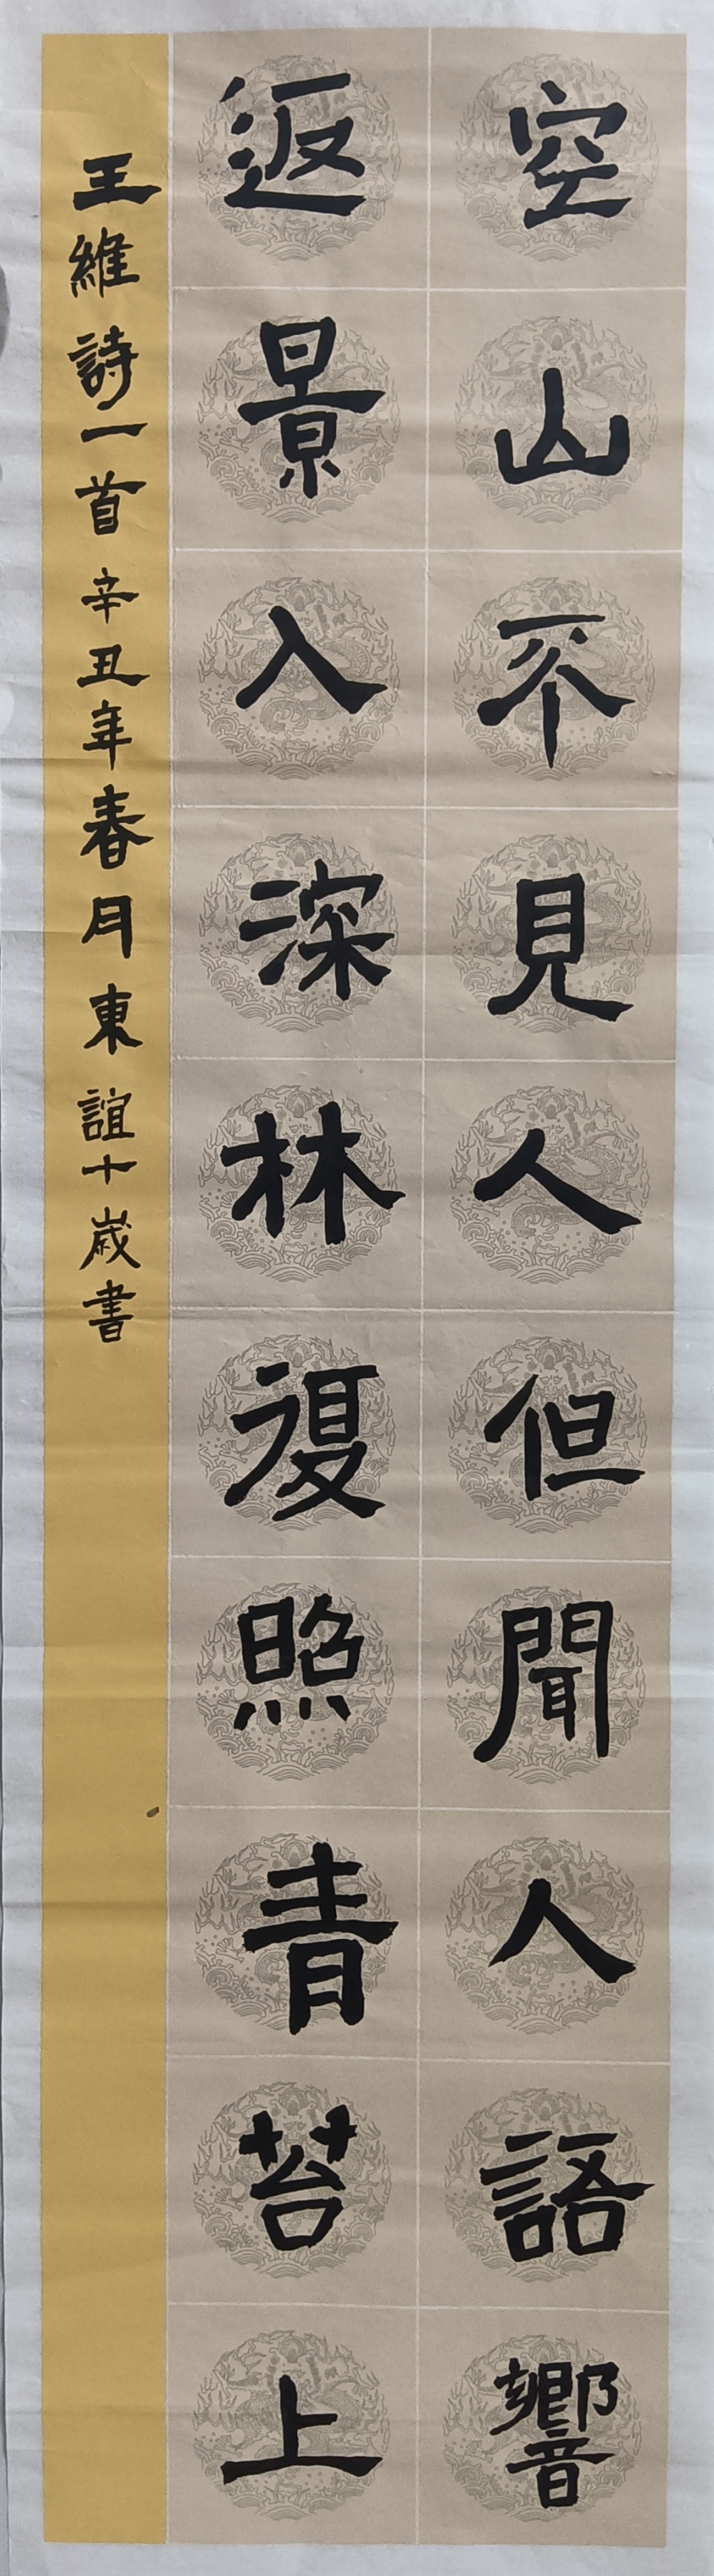 空山不見人但聞人語響
返景入深林復照青苔上
王維詩一首辛丑年春月東誼十歲書